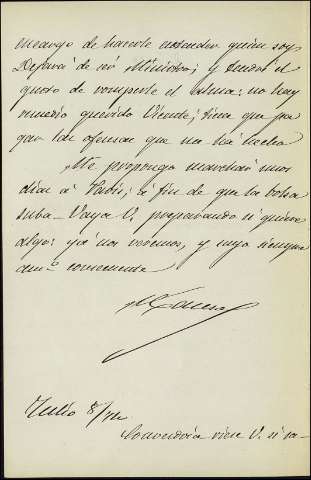 encargo de hacerle entender quien soy
Dejará de ser Ministro; y tendré el
gusto de romperle el alma: no hay
remedio querido Vicente; tiene que pa
gar las ofensas que me há hecho
Me propongo marchar unos
dias á Paris; á fin de que la bolsa
suba - Vaya V. preparando si quiere
algo: ya nos veremos, y suyo siempre
am.º consecuente
Julio 8/
Convendria viese V. si sa-